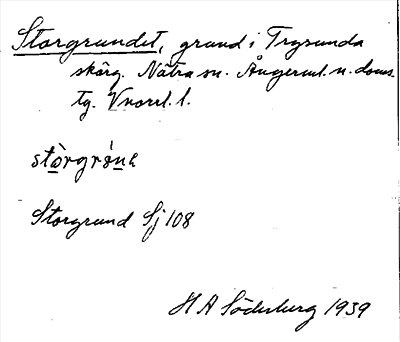 Storgrundet, grund i Trysunda
skärg. Nätra sn. Ångerml. n. doms.
tg. Vnorrl. l.
stòrgrónẹ
Storgrund Sj 108
H A Söderberg 1939